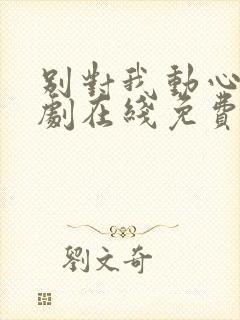 別對我動心
劇在綫免費
劉文奇